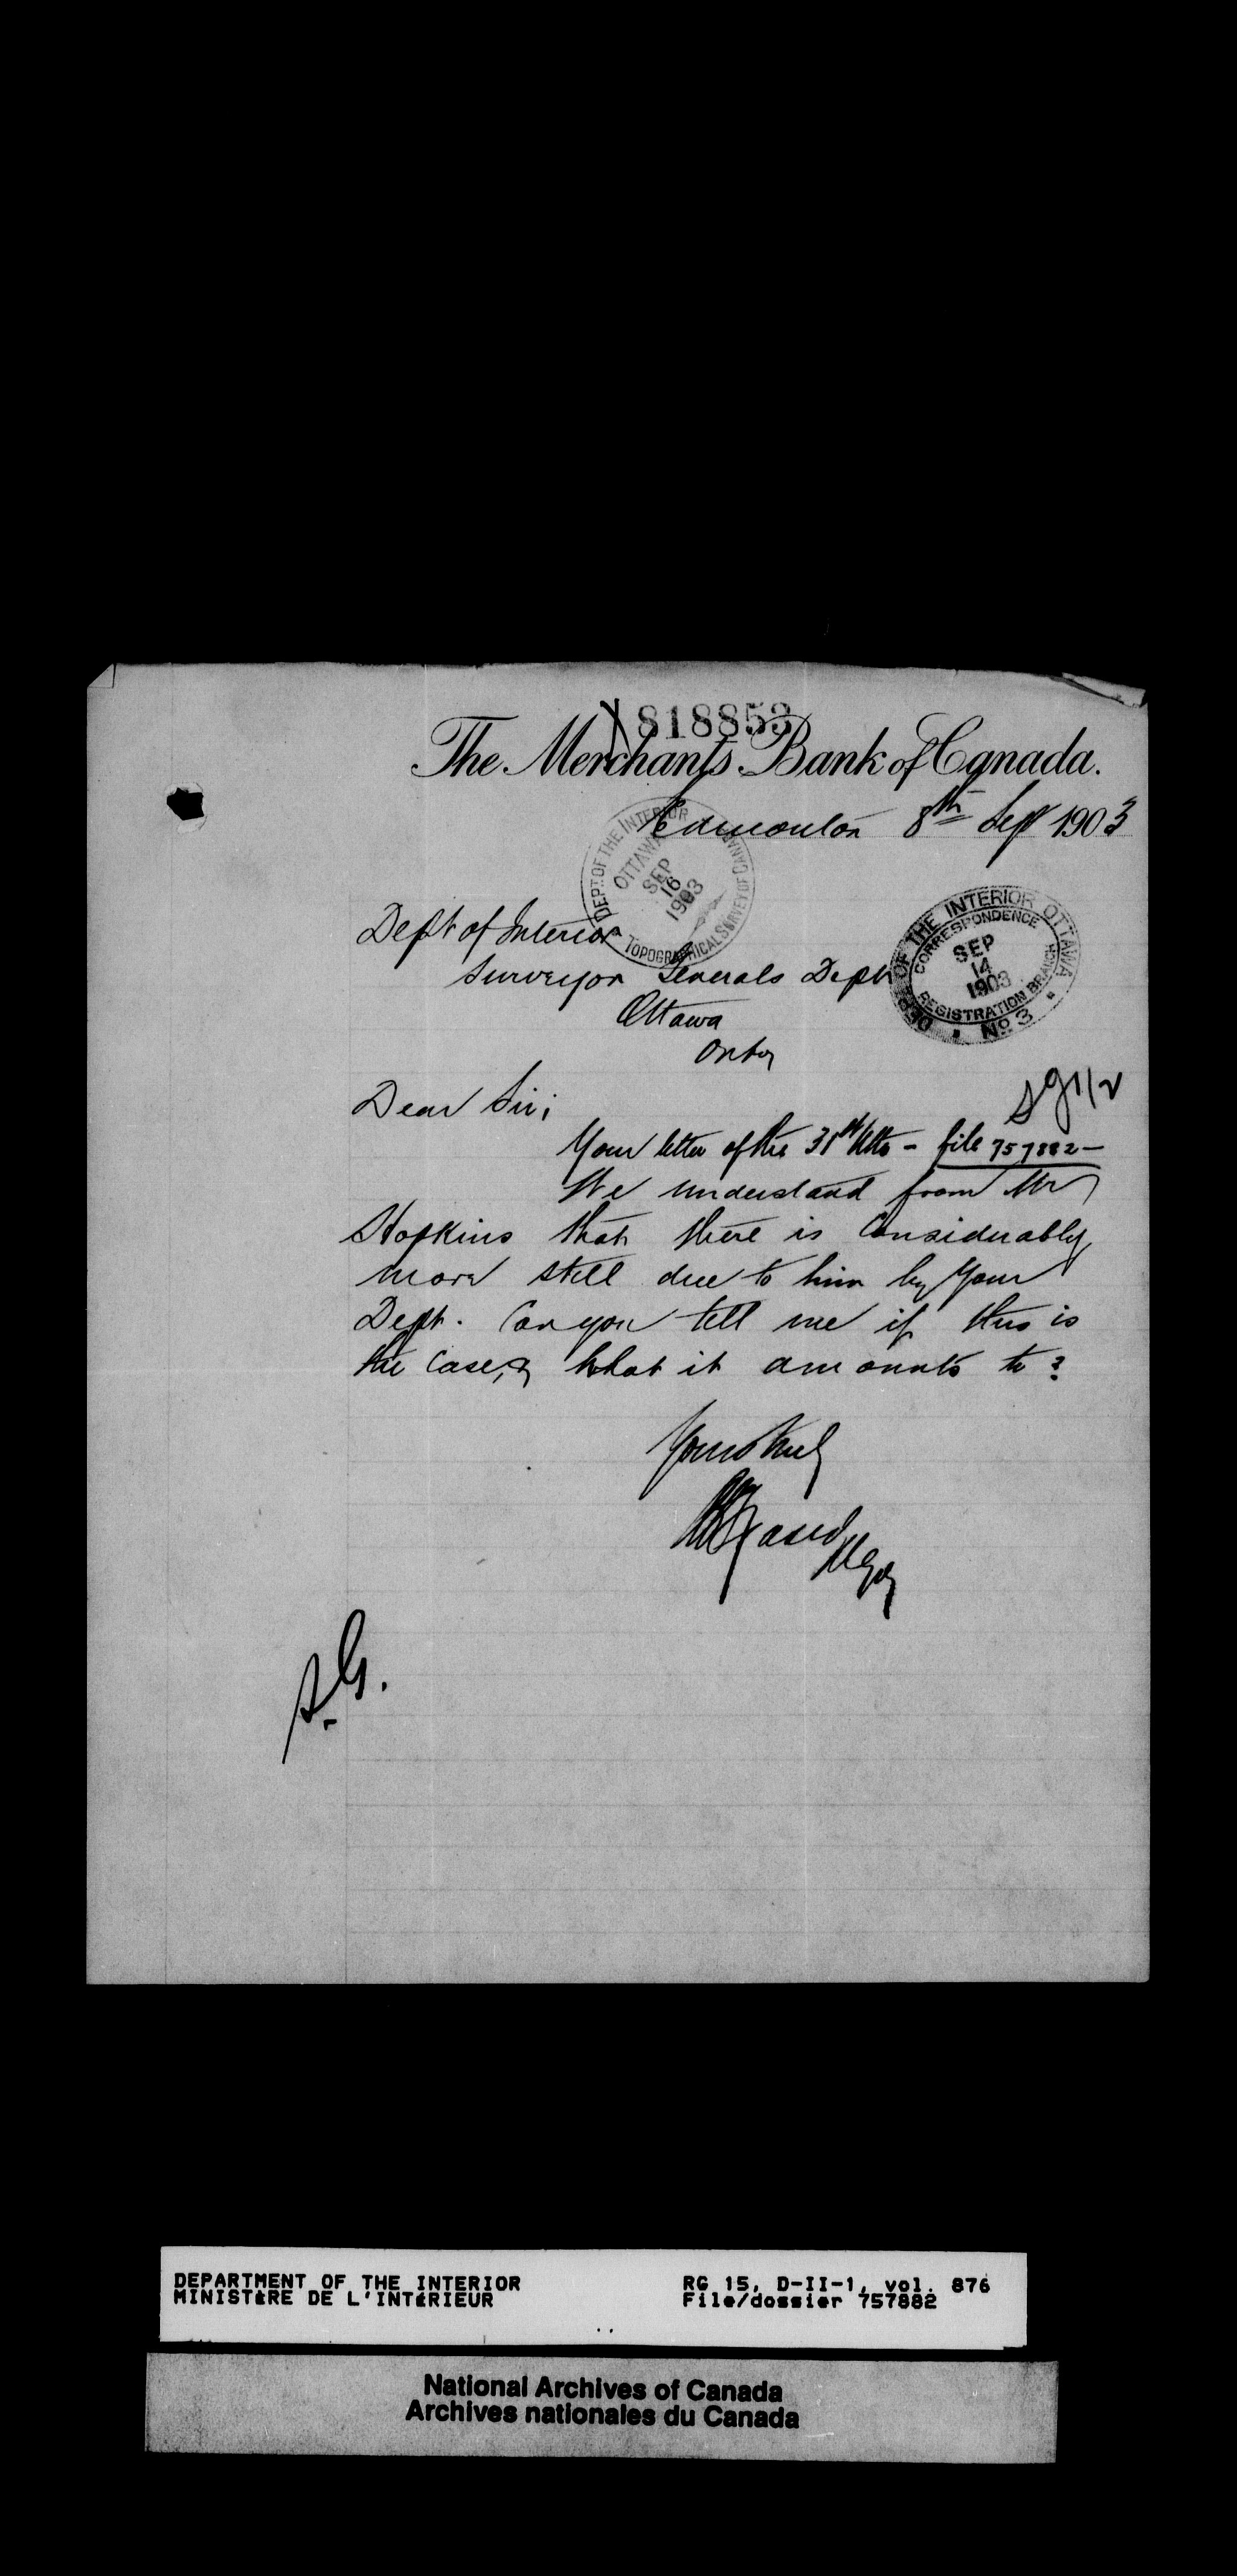 818853
The Merchants Bank of Canada.
Edmonton 8th Sept 1903
DEPT. OF THE INTERIOR
OTTAWA
SEP
16
1903
TOPOGRAPHICAL SURVEY OF CANADA
Dept of Interior
Surveyor Generals Dept
Ottawa
Onto
DEPT OF THE INTERIOR OTTAWA
CORRESPONDENCE
SEP
14
1903
REGISTRATION BRANCH
No 3
Dear Sir;
Your letter of the 31st Ulto - file 757882 -
We understand from Mr
Hopkins that there is Considerably
more still due to him by Your
Dept. Can you tell me if this is
the Case, & what it amounts to?
Yours truly
Mgr
S.G.
DEPARTMENT OF THE INTERIOR
MINISTÈRE DE L'INTÉRIEUR
RG 15, D-II-1, vol. 876
File/dossier 757882
National Archives of Canada
Archives nationales du Canada